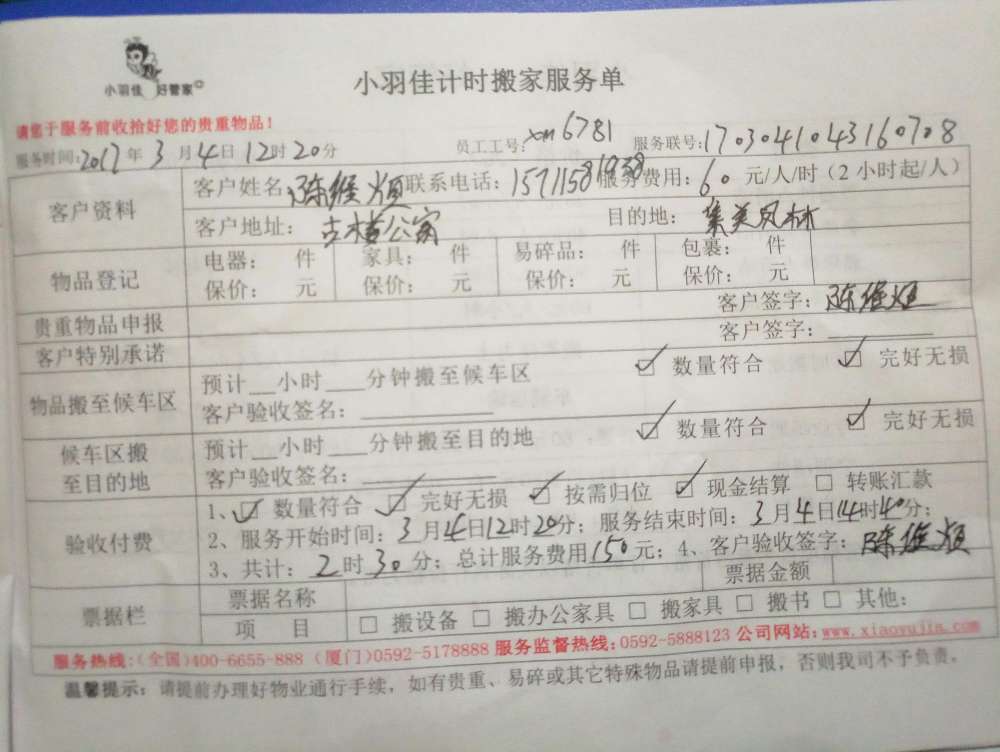 小羽佳 好管家
小羽佳计时搬家服务单
请您于服务前收拾好您的贵重物品!
服务时间:2017年3月4日12时20分 员工工号:xm6781 服务联号:1703041043160708
客户资料 客户姓名: 联系电话: 服务费用:60元/人/时(2小时起/人)
客户地址: 公寓 目的地:集美凤林
物品登记 电器: 件 家具: 件 易碎品: 件 包裹: 件
保价: 元 保价: 元 保价: 元 保价: 元
贵重物品申报 客户签字:
客户特别承诺 客户签字:
物品搬至候车区 预计 小时 分钟搬至候车区 数量符合 完好无损
客户验收签名:
候车区搬至目的地 预计 小时 分钟搬至目的地 数量符合 完好无损
客户验收签名:
验收付费 1、数量符合 完好无损 按需归位 现金结算 转账汇款
2、服务开始时间:3月4日12时20分;服务结束时间:3月4日14时40分;
3、共计:2时30分;总计服务费用150元;4、客户验收签字:
票据栏 票据名称 票据金额
项 目 搬设备 搬办公家具 搬家具 搬书 其他:
服务热线:(全国)400-6655-888 (厦门)0592-5178888 服务监督热线:0592-5888123 公司网站:www.xiaoyujia.com
温馨提示:请提前办理好物业通行手续,如有贵重、易碎或其它特殊物品请提前申报,否则我司不予负责。